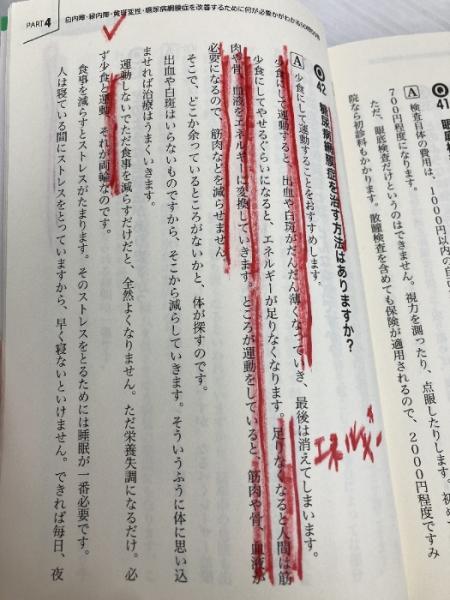 Q41
A 検査自体の費用は、1000円以内の自
700円程度になります。
ただ、眼底検査だけというのはできません。視力を測ったり、点眼したりします。初め
院なら初診料もかかります。散瞳検査を含めても保険が適用されるので、2000円程度ですみ
PART4 白内障・緑内障・黄斑変性・糖尿病網膜症を改善するために何が必要かがわかる50問50答
Q42 糖尿病網膜症を治す方法はありますか?
A 少食にして運動することをおすすめします。
少食にして運動すると、出血や白斑がだんだん薄くなっていき、最後は消えてしまいます。
少食にしてやせるぐらいになると、エネルギーが足りなくなります。足りなくなると人間は筋
肉や骨、血液をエネルギーに変換していきます。ところが運動をしていると、筋肉や骨、血液が
必要になるので、筋肉などを減らせません。
そこで、どこか余っているところがないかと、体が探すのです。
出血や白斑はいらないものですから、そこから減らしていきます。そういうふうに体に思い込
ませれば治療はうまくいきます。
運動しないでただ食事を減らすだけだと、全然よくなりません。ただ栄養失調になるだけ。必
ず少食と運動、それが両輪なのです。
食事を減らすとストレスがたまります。そのストレスをとるためには睡眠が一番必要です。
人は寝ている間にストレスをとっていますから、早く寝ないといけません。できれば毎日、夜
エネルギー